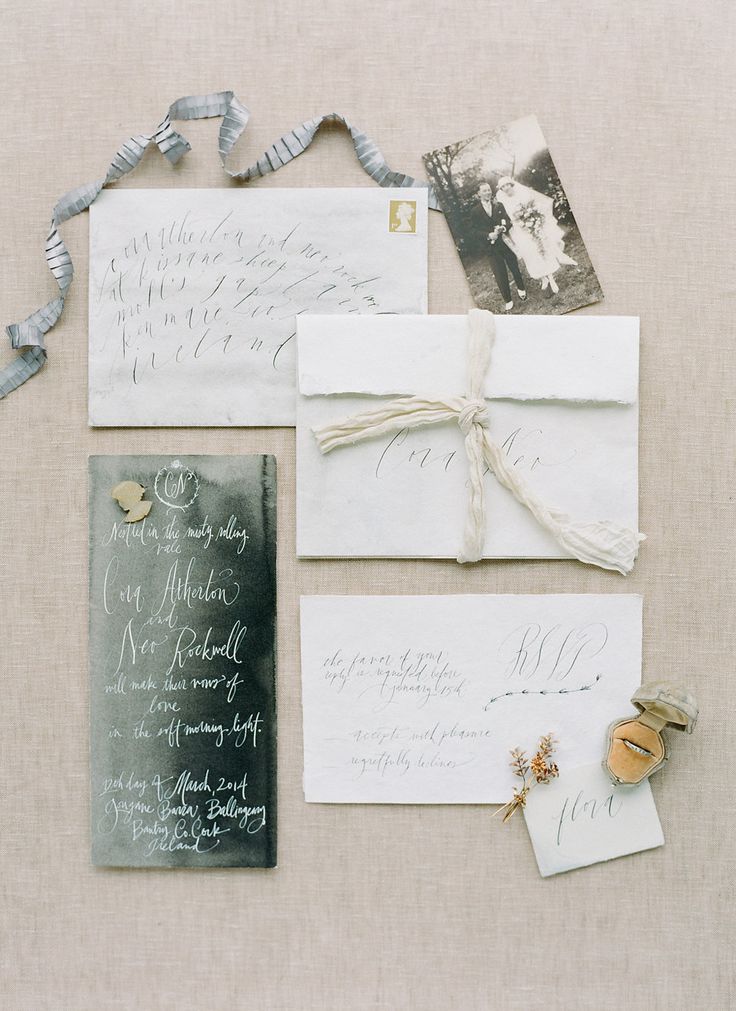 Cora Atherton and Neo Rock
at Kissane Sheep Farm
Moll's Gap
Kenmare, Co.
Ireland
Cora Neo
CN
Nestled in the misty rolling
vale
Cora Atherton
and
Neo Rockwell
will make their vows of
love
in the soft morning light.
12th day of March, 2014
Ballingeary
Bantry Co. Cork
Ireland
RSVP
the favor of your
reply is requested before
january 15th
accepts with pleasure
regretfully declines
flora